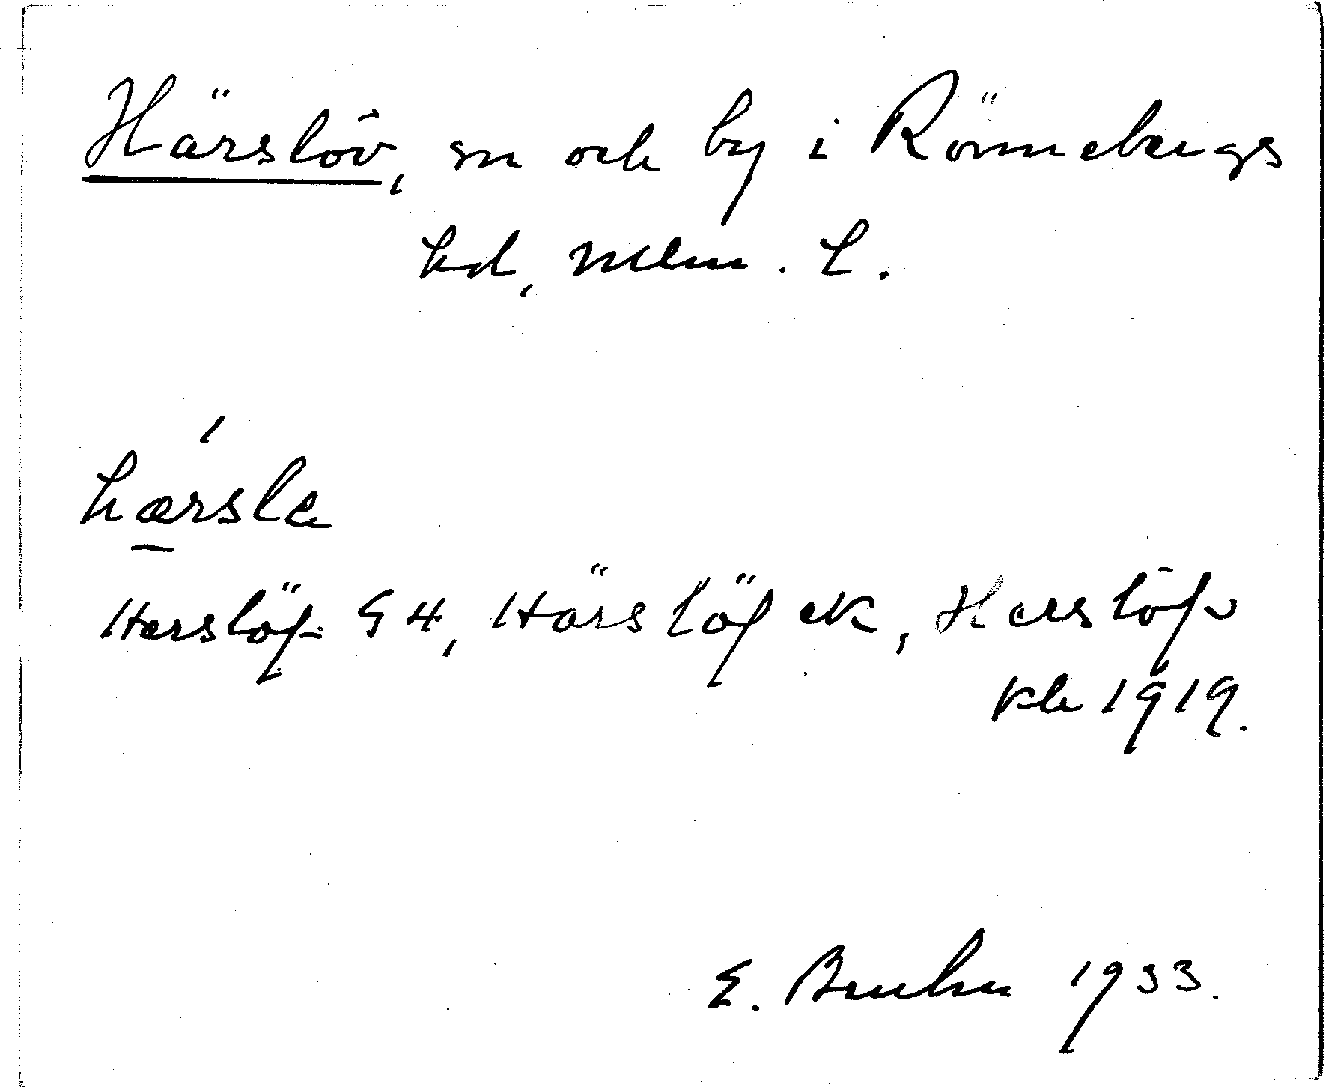 Härslöv, sn och by i Rönnebergs
hd, Mlm. L.
hærsla
Herslöf G4, Härslöf ek, Herslöf
kk 1919.
E. Bruhn 1933.